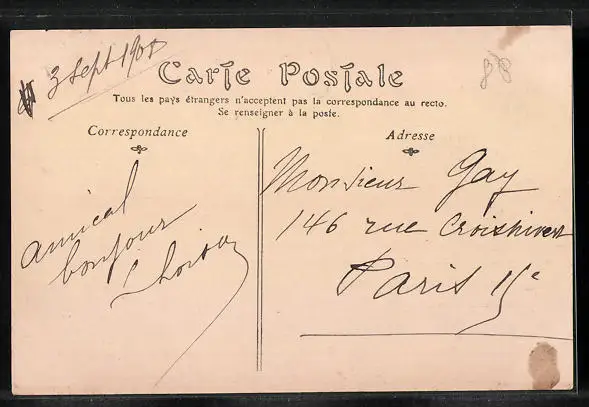 3 Sept 1908
Carte Postale
Tous les pays étrangers n'acceptent pas la correspondance au recto.
Se renseigner à la poste.
Correspondance
amical
bonjour
Adresse
Monsieur Gay
146 rue Croixnivert
Paris 15e